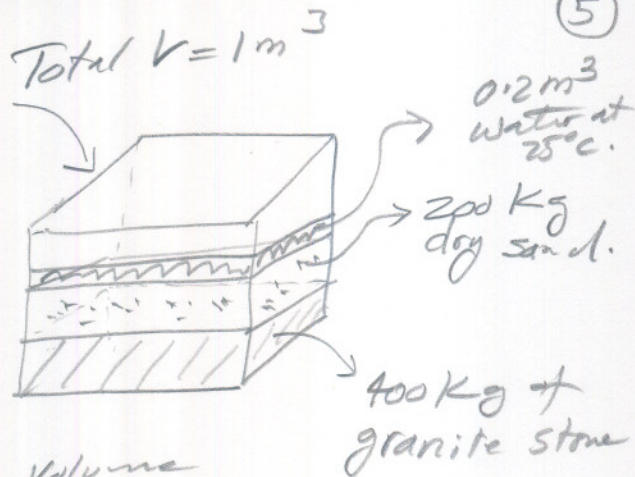 5
Total V = 1m³
0.2m³
water at
25°C.
200 Kg
dry sand.
400 Kg of
granite stone
Volume